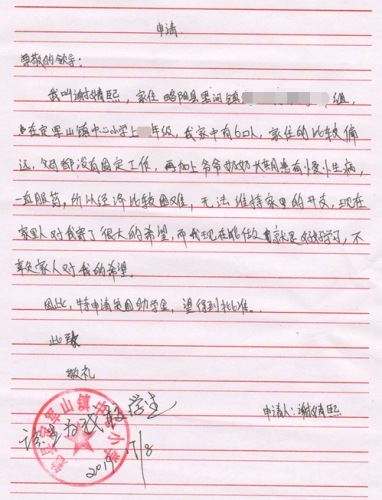 申请
尊敬的领导:
我叫谢婧熙,家住略阳县黑河镇 组,
在定军山镇中心小学上 年级,我家中有6口人,家住的比较偏
远,父母都没有固定工作,再加上爷爷奶奶长期患有小要小生病,
一直服药,所以经济比较困难,无法维持家里的开支,现在
家里人对我寄了很大的希望,而我现在能做的就是好好学习,不
辜负家人对我的希望。
因此,特申请贫困助学金,望得到批准。
此致
敬礼
申请人:谢婧熙
该生为我校学生
2019
勉县定军山镇中心小学